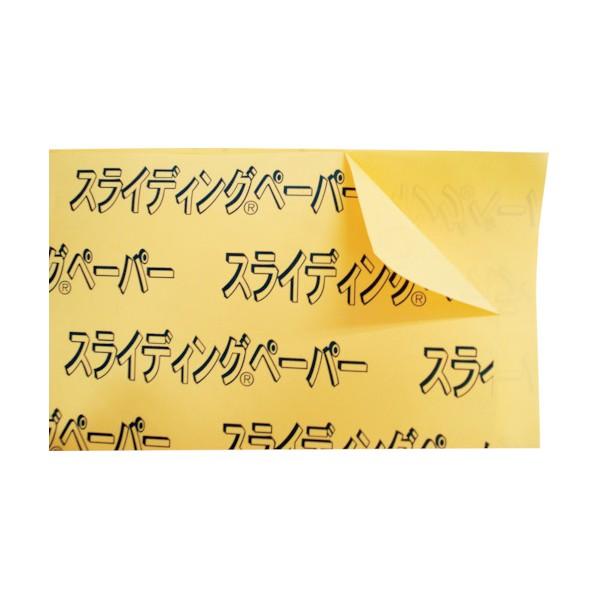 スライディング®ペーパー
グ®ペーパー スライディング®ペ
スライディング®ペーパー スライ
グペーパー スライディングペーパー